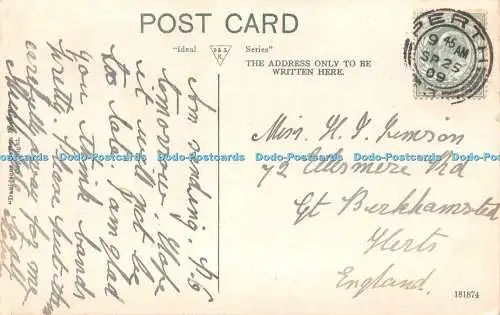 POST CARD
"Ideal
D&S
K
Series"
THE ADDRESS ONLY TO BE
WRITTEN HERE.
PERTH
9 45 AM
SP 25
09
Am sending P/O
tomorrow. Hope
it will not be
too late. I am glad
you think cards
pretty. Please put them
carefully away for me
Miss H. J. Jemson
72 Ellesmere Rd
Gt Berkhamsted
Herts
England
181874
Dodo-Postcards Dodo-Postcards Dodo-Postcards Dodo-Postcards Dodo-Postcards